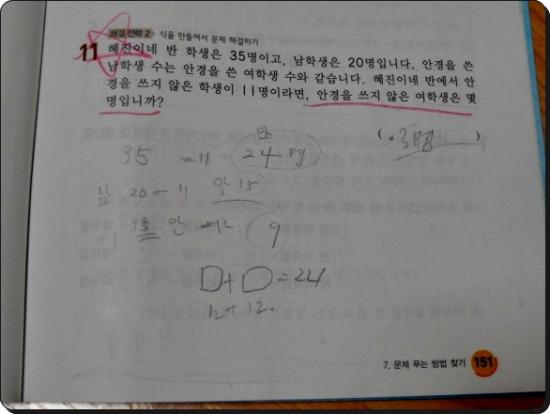 해결 전략 2 식을 만들어서 문제 해결하기
11 혜진이네 반 학생은 35명이고, 남학생은 20명입니다. 안경을 쓴
남학생 수는 안경을 쓴 여학생 수와 같습니다. 혜진이네 반에서 안
경을 쓰지 않은 학생이 11명이라면, 안경을 쓰지 않은 여학생은 몇
명입니까?
( 3명 )
안
35 - 11 = 24명
20 - 11
안 - 12 9
□+□=24
12+12
7. 문제 푸는 방법 찾기 151